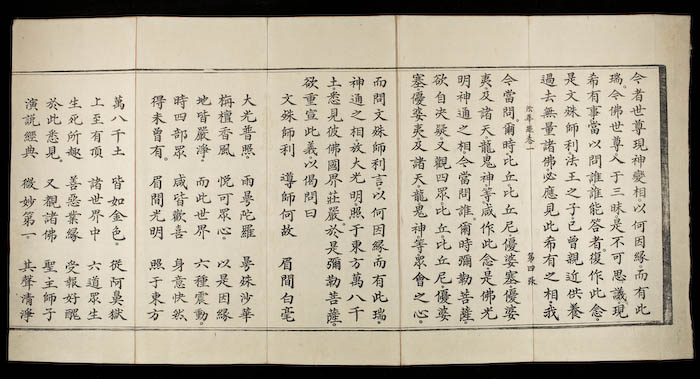 今者世尊現神變相。以何因緣而有此
瑞。今佛世尊入于三昧是不可思議。現
希有事當以問誰誰能答者。復作此念。
是文殊師利法王之子已曾親近供養
過去無量諸佛必應見此希有之相我
卷一 第四張
今當問爾時比丘比丘尼優婆塞優婆
夷及諸天龍鬼神等咸作此念是佛光
明神通之相今當問誰。爾時彌勒菩薩。
欲自決疑又觀四眾比丘比丘尼優婆
塞優婆夷及諸天龍鬼神等眾會之心。
而問文殊師利言以何因緣而有此瑞。
神通之相放大光明照于東方萬八千
土悉見彼佛國界莊嚴於是彌勒菩薩。
欲重宣此義以偈問曰
文殊師利 導師何故 眉間白毫
大光普照 雨曼陀羅 曼殊沙華
栴檀香風 悅可眾心 以是因緣
地皆嚴淨。 而此世界 六種震動。
時四部眾 咸皆歡喜 身意快然
得未曾有。 眉間光明 照于東方
萬八千土 皆如金色。 從阿鼻獄
上至有頂 諸世界中 六道眾生
生死所趣 善惡業緣 受報好醜
於此悉見 又觀諸佛 聖主師子
演說經典 微妙第一 其聲清淨